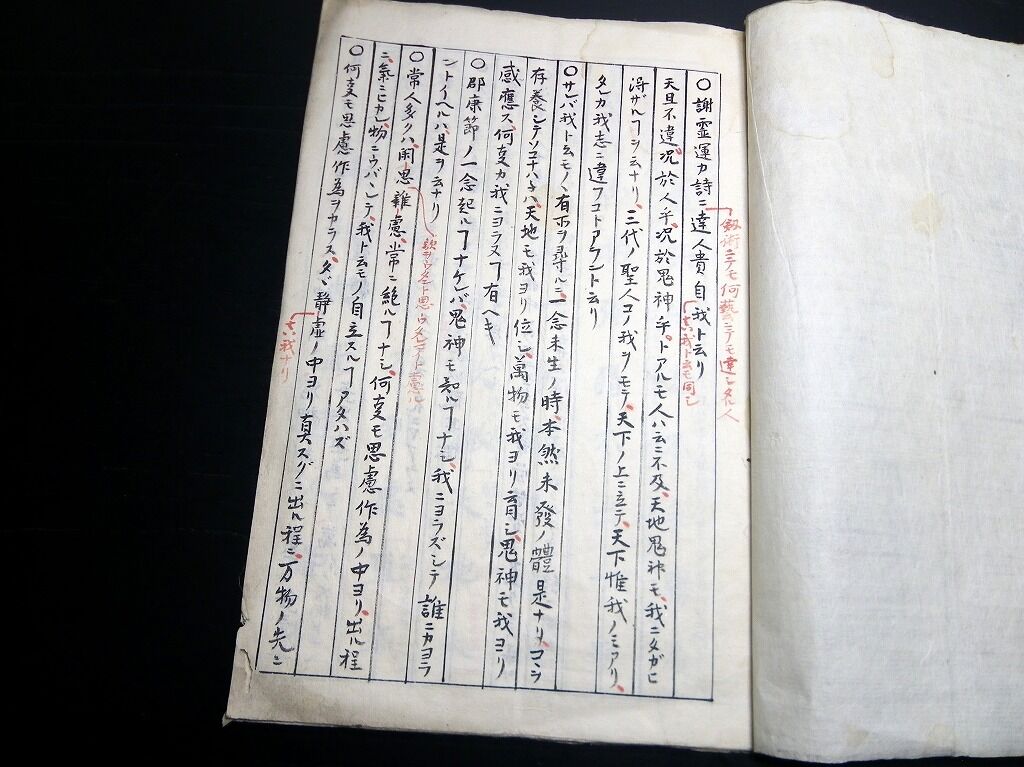 〇謝霊運カ詩ニ達人貴自我ト云リ
劔術ニテモ何藝ニテモ達シタル人
我ト云モ同シ
天且不違况於人乎况於鬼神乎トアルモ人ハ云ニ不及天地鬼神モ我ニタガヒ
得ザルヿヲ云ナリ三代ノ聖人コノ我ヲモテ天下ノ上ニ立テ天下惟我ノミアリ
タレカ我志ニ違フコトアラントム云リ
〇サレバ我ト云モノヽ有所ヲ尋ルニ一念未生ノ時本然未發ノ體是ナリコレヲ
存養シテソコナハ子ハ天地モ我ヨリ位シ萬物モ我ヨリ育シ鬼神モ我ヨリ
感應ス何変カ我ニヨラヌヿ有ヘキ
〇邵康節ノ一念起ルヿナケレバ鬼神モ知ルヿナシ我ニヨラズシテ誰ニカヨラ
ントイヘルハ是ヲ云ナリ
〇常人多クハ閑思雜慮常ニ絶ルヿナシ何変モ思慮作為ノ中ヨリ出ル程
ニ氣ニヒカレ物ニウバヽレテ我ト云モノ自立スルヿアタハズ
〇何変モ思慮作為ヲカラスタヾ静虚ノ中ヨリ真スグニ出ル程ニ万物ノ先ニ
我ナリ